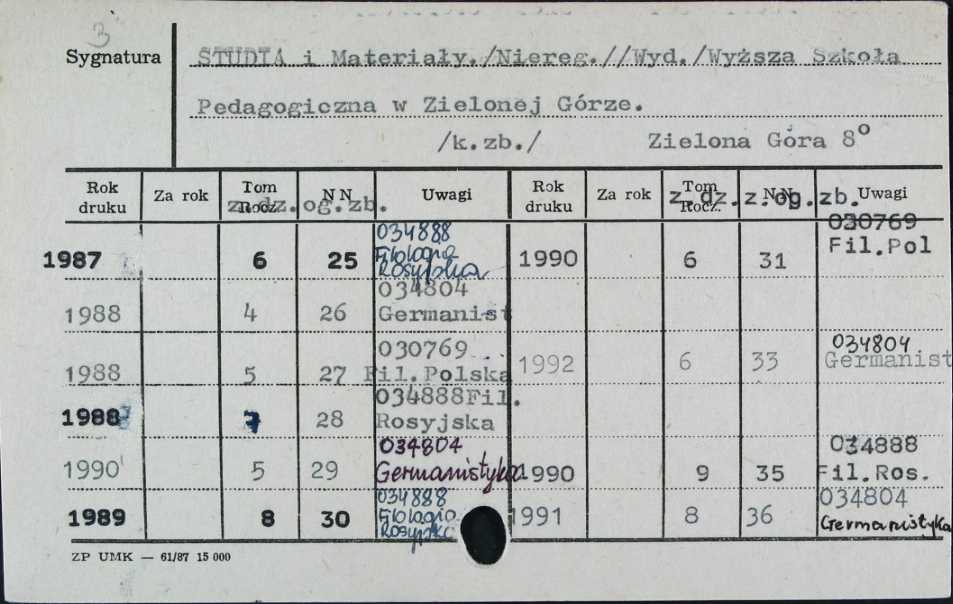 3
Sygnatura
STUDIA i Materiały./Niereg.//Wyd./Wyższa Szkoła
Pedagogiczna w Zielonej Górze.
/k.zb./ Zielona Góra 8°
Rok druku Za rok Tom Rocz. NN Uwagi Rok druku Za rok Tom Rocz. NN Uwagi
z.dz.og.zb. z.dz.z.og.zb.
1987 6 25 034888 Filologia Rosyjska 1990 6 31 030769 Fil.Pol
1988 4 26 034804 Germanist
1988 5 27 030769 Fil.Polska 1992 6 33 034804 Germanist
1988 7 28 034888Fil. Rosyjska
1990 5 29 034804 Germanistyka 1990 9 35 034888 Fil.Ros.
1989 8 30 034888 Filologia Rosyjska 1991 8 36 034804 Germanistyka
ZP UMK — 61/87 15 000